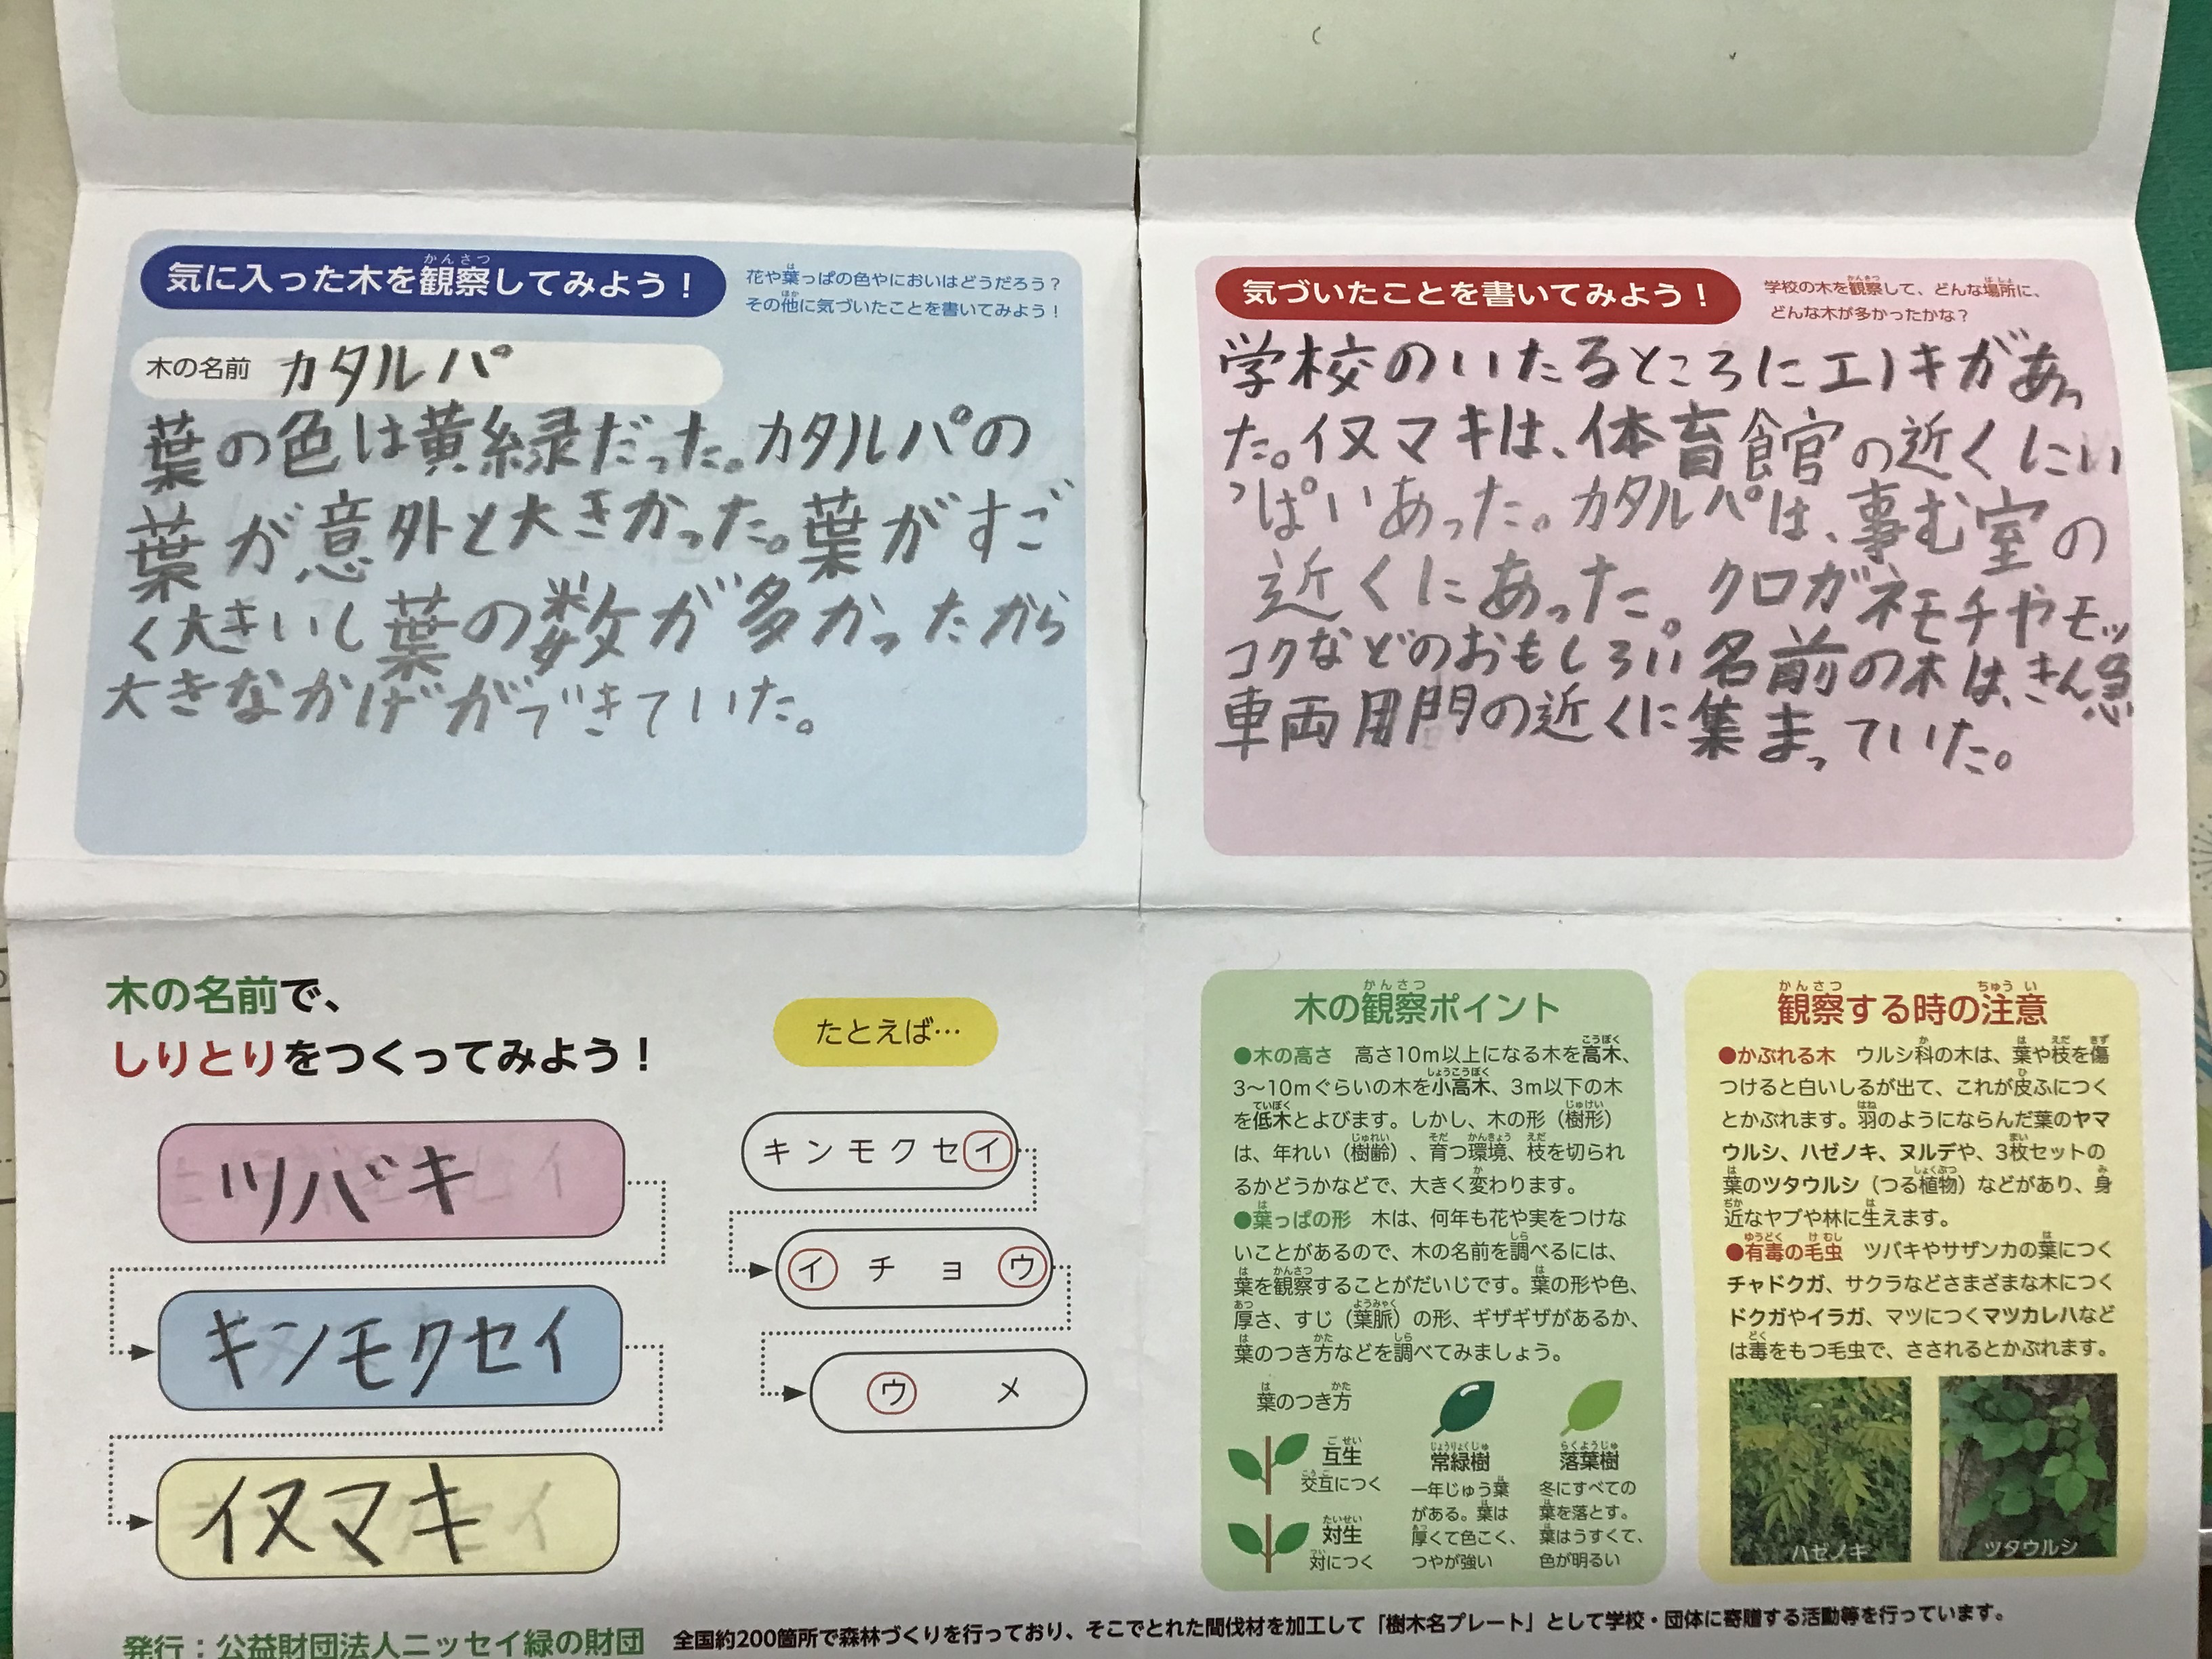 気に入った木を観察してみよう！
花や葉っぱの色やにおいはどうだろう？
その他に気づいたことを書いてみよう！
木の名前 カタルパ
葉の色は黄緑だった。カタルパの
葉が意外と大きかった。葉がすご
く大きいし葉の数が多かったから
大きなかげができていた。
気づいたことを書いてみよう！
学校の木を観察して、どんな場所に、
どんな木が多かったかな？
学校のいたるところにエノキがあっ
た。イヌマキは、体育館の近くにい
っぱいあった。カタルパは、事む室の
近くにあった。クロガネモチやモッ
コクなどのおもしろい名前の木は、きん急
車両用門の近くに集まっていた。
木の名前で、
しりとりをつくってみよう！
ツバキ
キンモクセイ
イヌマキ
たとえば…
キンモクセイ
イチョウ
ウメ
木の観察ポイント
●木の高さ 高さ10m以上になる木を高木、
3～10mぐらいの木を小高木、3m以下の木
を低木とよびます。しかし、木の形（樹形）
は、年れい（樹齢）、育つ環境、枝を切られ
るかどうかなどで、大きく変わります。
●葉っぱの形 木は、何年も花や実をつけな
いことがあるので、木の名前を調べるには、
葉を観察することがだいじです。葉の形や色、
厚さ、すじ（葉脈）の形、ギザギザがあるか、
葉のつき方などを調べてみましょう。
葉のつき方
互生
交互につく
対生
対につく
常緑樹
一年じゅう葉
がある。葉は
厚くて色こく、
つやが強い
落葉樹
冬にすべての
葉を落とす。
葉はうすくて、
色が明るい
観察する時の注意
●かぶれる木 ウルシ科の木は、葉や枝を傷
つけると白いしるが出て、これが皮ふにつく
とかぶれます。羽のようにならんだ葉のヤマ
ウルシ、ハゼノキ、ヌルデや、3枚セットの
葉のツタウルシ（つる植物）などがあり、身
近なヤブや林に生えます。
●有毒の毛虫 ツバキやサザンカの葉につく
チャドクガ、サクラなどさまざまな木につく
ドクガやイラガ、マツにつくマツカレハなど
は毒をもつ毛虫で、さされるとかぶれます。
ハゼノキ
ツタウルシ
発行：公益財団法人ニッセイ緑の財団 全国約200箇所で森林づくりを行っており、そこでとれた間伐材を加工して「樹木名プレート」として学校・団体に寄贈する活動等を行っています。